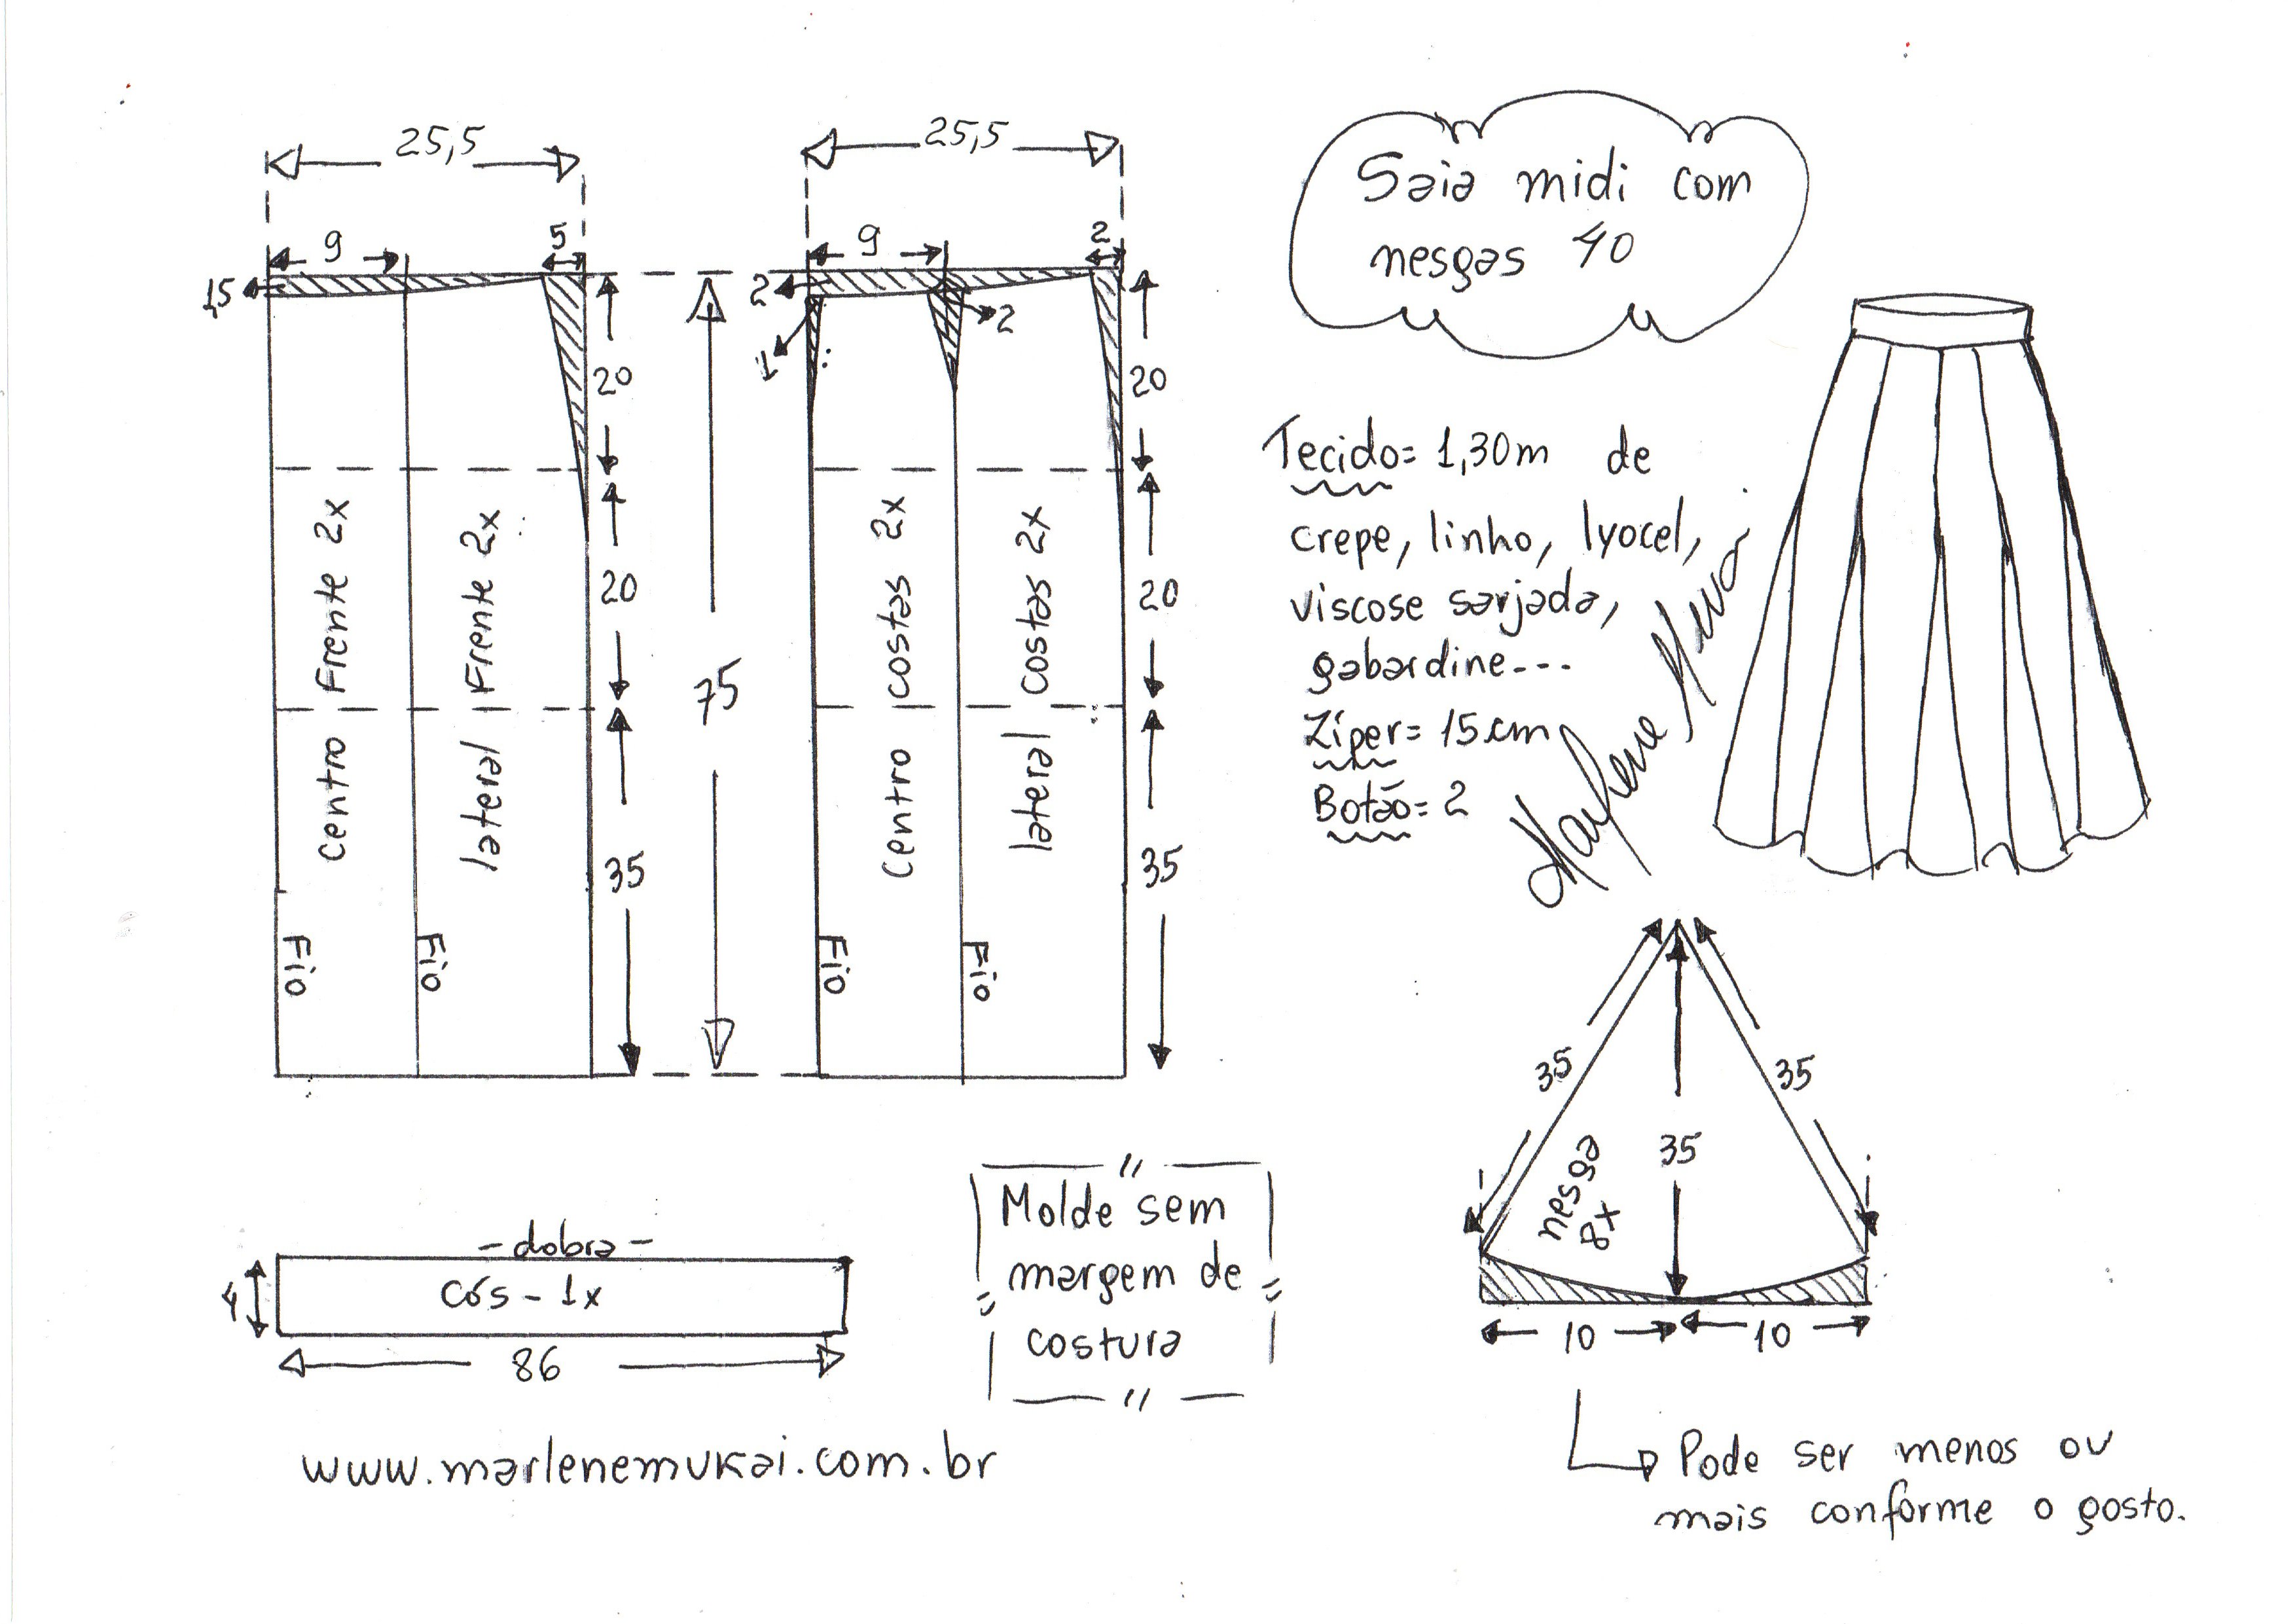 25,5
25,5
9
5
9
2
15
2
1
2
20
20
20
20
35
35
75
centro Frente 2x
lateral Frente 2x
centro costas 2x
lateral costas 2x
Fio
Fio
Fio
Fio
Saia midi com
nesgas 40
Tecido= 1,30m de
crepe, linho, lyocel,
viscose sarjada,
gabardine---
Zíper= 15cm
Botão= 2
35
35
35
nesga
8x
10
10
Pode ser menos ou
mais conforme o gosto.
-dobra-
cós - 1x
4
86
Molde sem
margem de
costura
www.marlenemukai.com.br